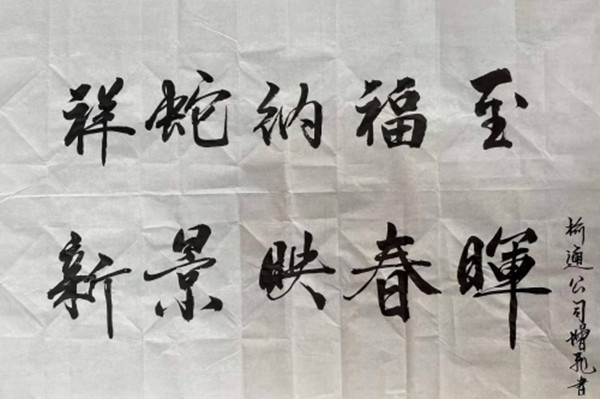 祥蛇纳福至
新景映春暉
榆通公司增飛书